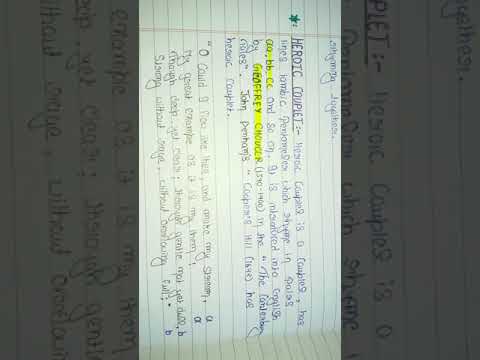 rhyming together.
*: HEROIC COUPLET:- Heroic Couplet is a couplet, has
lines iambic Pentameter which rhyme in pairs
aa, bb cc and so on. It is introduced into English
by GEOFFREY CHOUCER in the "The Canterbury
tales". John Denham's "Cooper's Hill (1642) has
heroic couplet.
"O Could I flow like thee, and make my Stream, a
My great example as it is my them! a
Though deep, yet clear; though gentle not yet dull, b
Strong without rage, without overflowing full;" b